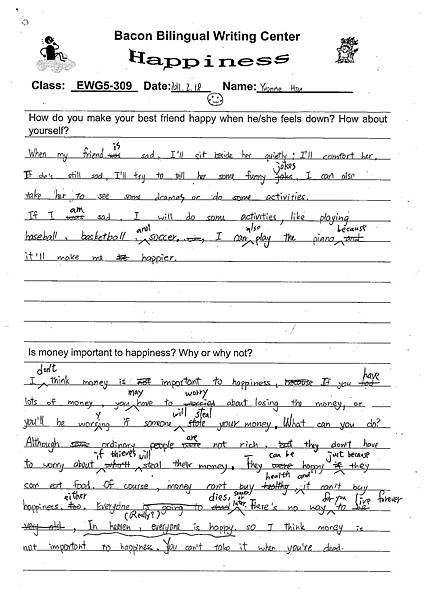 Bacon Bilingual Writing Center
Happiness
Class: EWG5-309 Date: 2011.2.18 Name: Yvonne Hsu
How do you make your best friend happy when he/she feels down? How about
yourself?
is
When my friend sad, I'll sit beside her quietly; I'll comfort her.
jokes
If she's still sad, I'll try to tell her some funny joke. I can also
take her to see some dramas or do some activities.
am
If I was sad, I will do some activities, like playing
and also because
baseball, basketball, soccer, I can play the piano and
it'll make me happier.
Is money important to happiness? Why or why not?
don't have
I think money is not important to happiness, because If you had
may worry
lots of money, you have to worried about losing the money, or
will steal
you'll be worrying if someone stole your money. What can you do?
are
Although ordinary people not rich, but they don't have
if thieves will can be just because
to worry about steal their money. They were happy if they
health and
can eat food. Of course, money can't buy healthy, it can't buy
either dies, sooner or later. for you live forever
happiness. too. Everyone is going to dead. There's no way to be
(Really?)
very old. In heaven, everyone is happy. so I think money is
not important to happiness. You can't take it when you're dead.